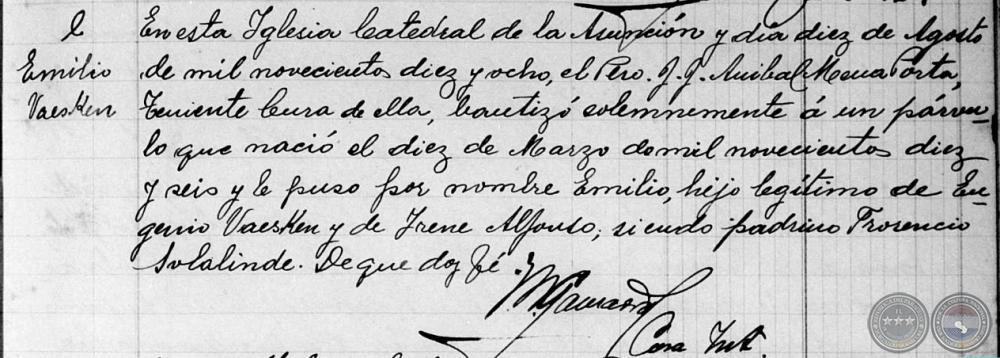 l
Emilio
Vaesken
En esta Iglesia Catedral de la Asunción y día diez de Agosto
de mil novecientos diez y ocho, el Pbro. J. J. Anibal Mena Porta,
Teniente Cura de ella, bautizó solemnemente á un párvu-
lo que nació el diez de Marzo de mil novecientos diez
y seis y le puso por nombre Emilio, hijo legítimo de Eu-
genio Vaesken y de Irene Alfonso; siendo padrino Prosencio
Solalinde. De que doy fé.
Cura Int.